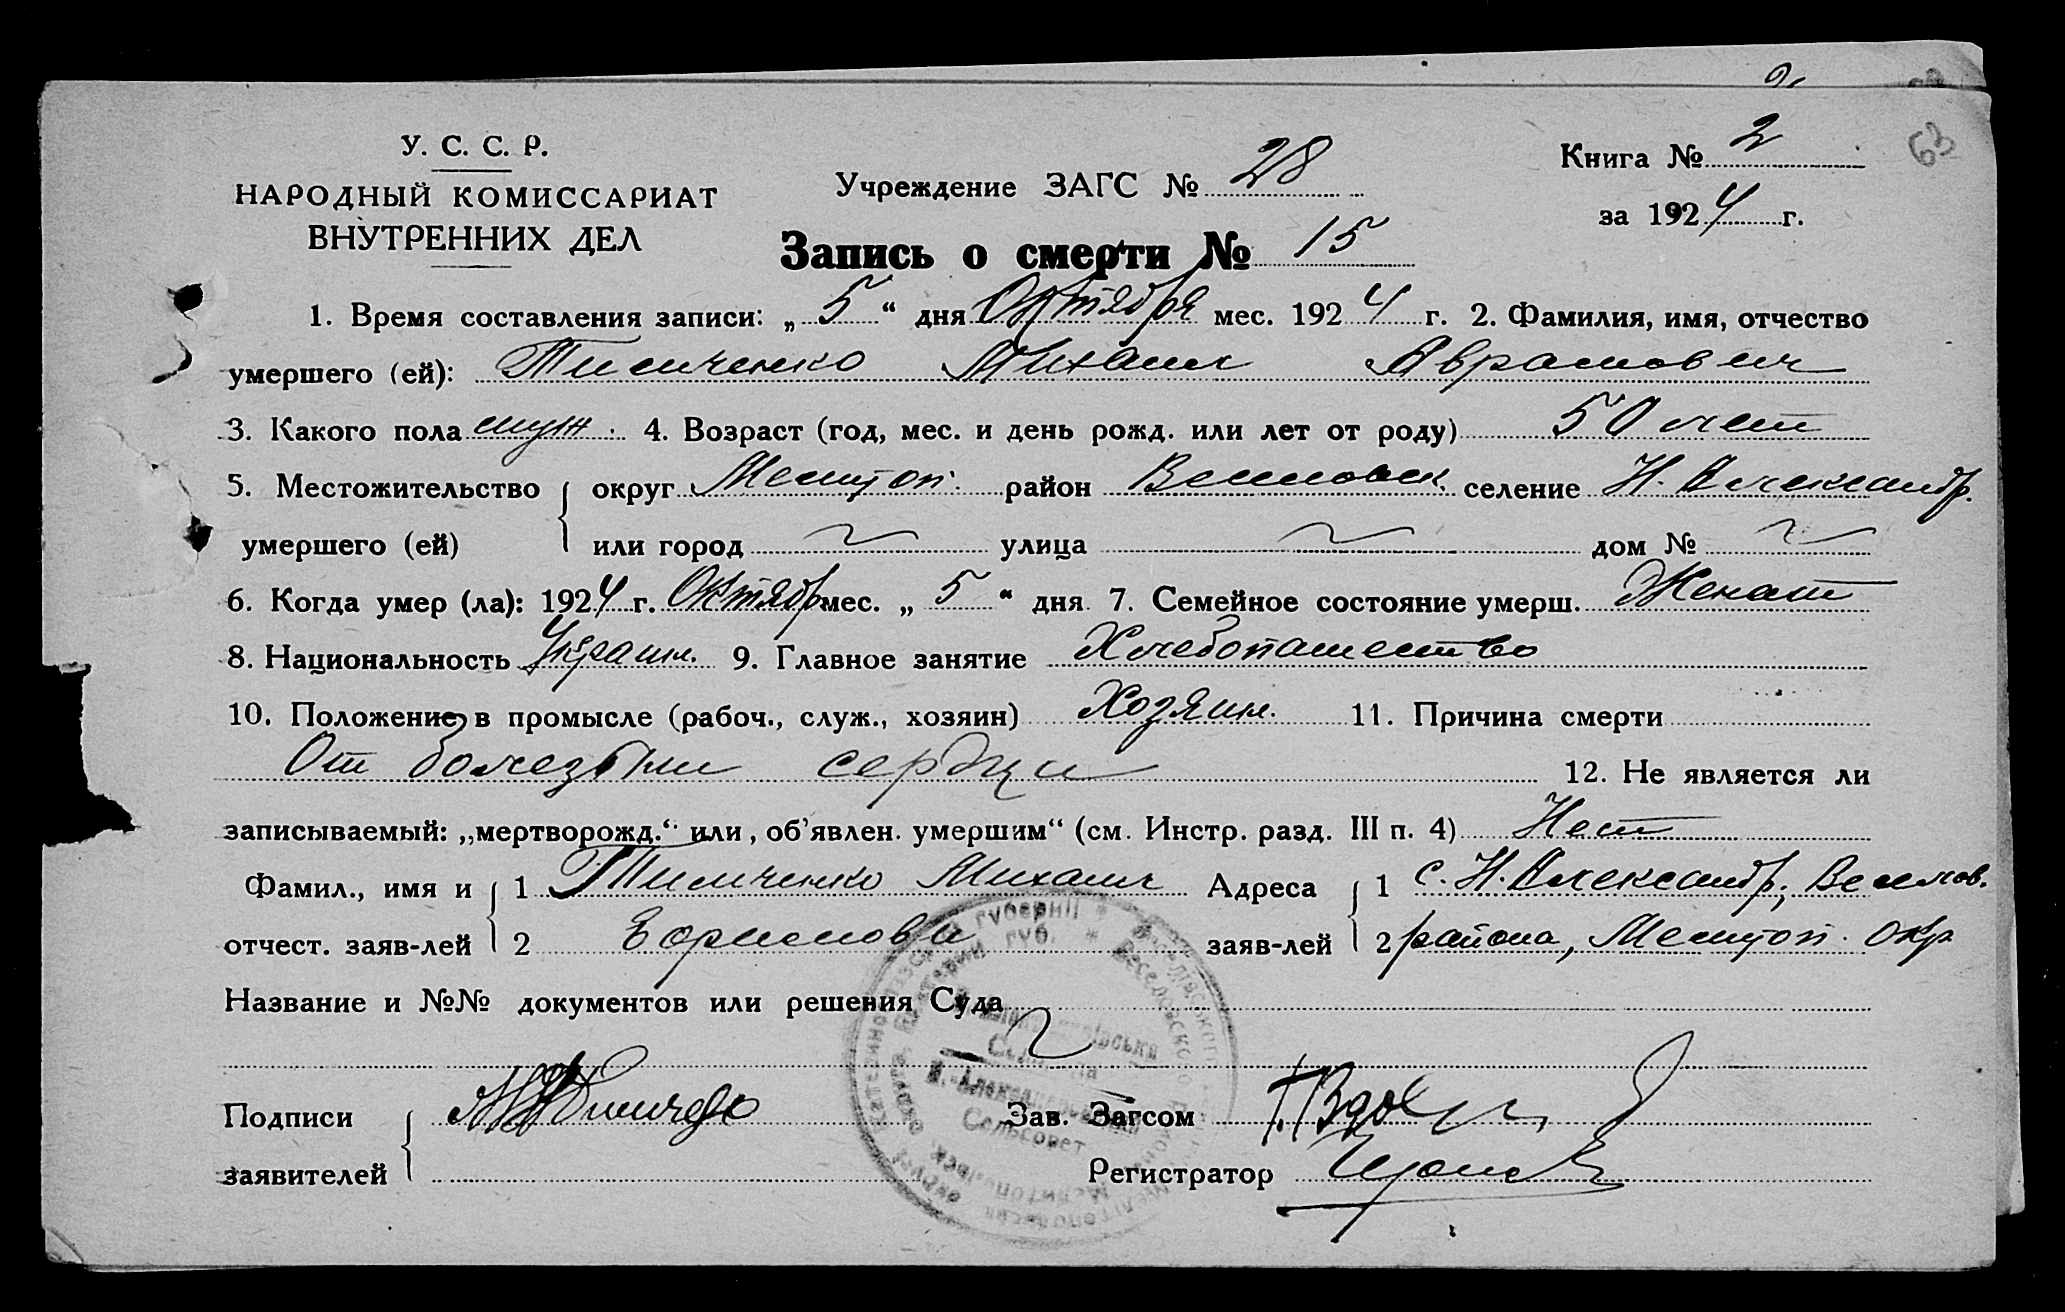 63
У. С. С. Р.
НАРОДНЫЙ КОМИССАРИАТ
ВНУТРЕННИХ ДЕЛ
Учреждение ЗАГС № 28
Книга № 2
за 1924 г.
Запись о смерти № 15
1. Время составления записи: „5“ дня Октября мес. 1924 г. 2. Фамилия, имя, отчество
умершего (ей): Тимченко Михаил Аврамович
3. Какого пола муж. 4. Возраст (год, мес. и день рожд. или лет от роду) 50 лет
5. Местожительство округ Мелитоп. район Веселовск. селение Н. Александр.
умершего (ей) или город улица дом №
6. Когда умер (ла): 1924 г. Октябр мес. „5“ дня 7. Семейное состояние умерш. Женат
8. Национальность Украин. 9. Главное занятие Хлебопашество
10. Положение в промысле (рабоч., служ., хозяин) Хозяин. 11. Причина смерти
От болезни сердца 12. Не является ли
записываемый: „мертворожд.“ или „об'явлен. умершим“ (см. Инстр. разд. III п. 4) Нет
Фамил., имя и 1 Тимченко Михаил Адреса 1 с. Н. Александр., Веселов.
отчест. заяв-лей 2 заяв-лей 2 района, Мелитоп. Окр
Название и №№ документов или решения Суда
Подписи Зав. Загсом
заявителей Регистратор
Сельсовет